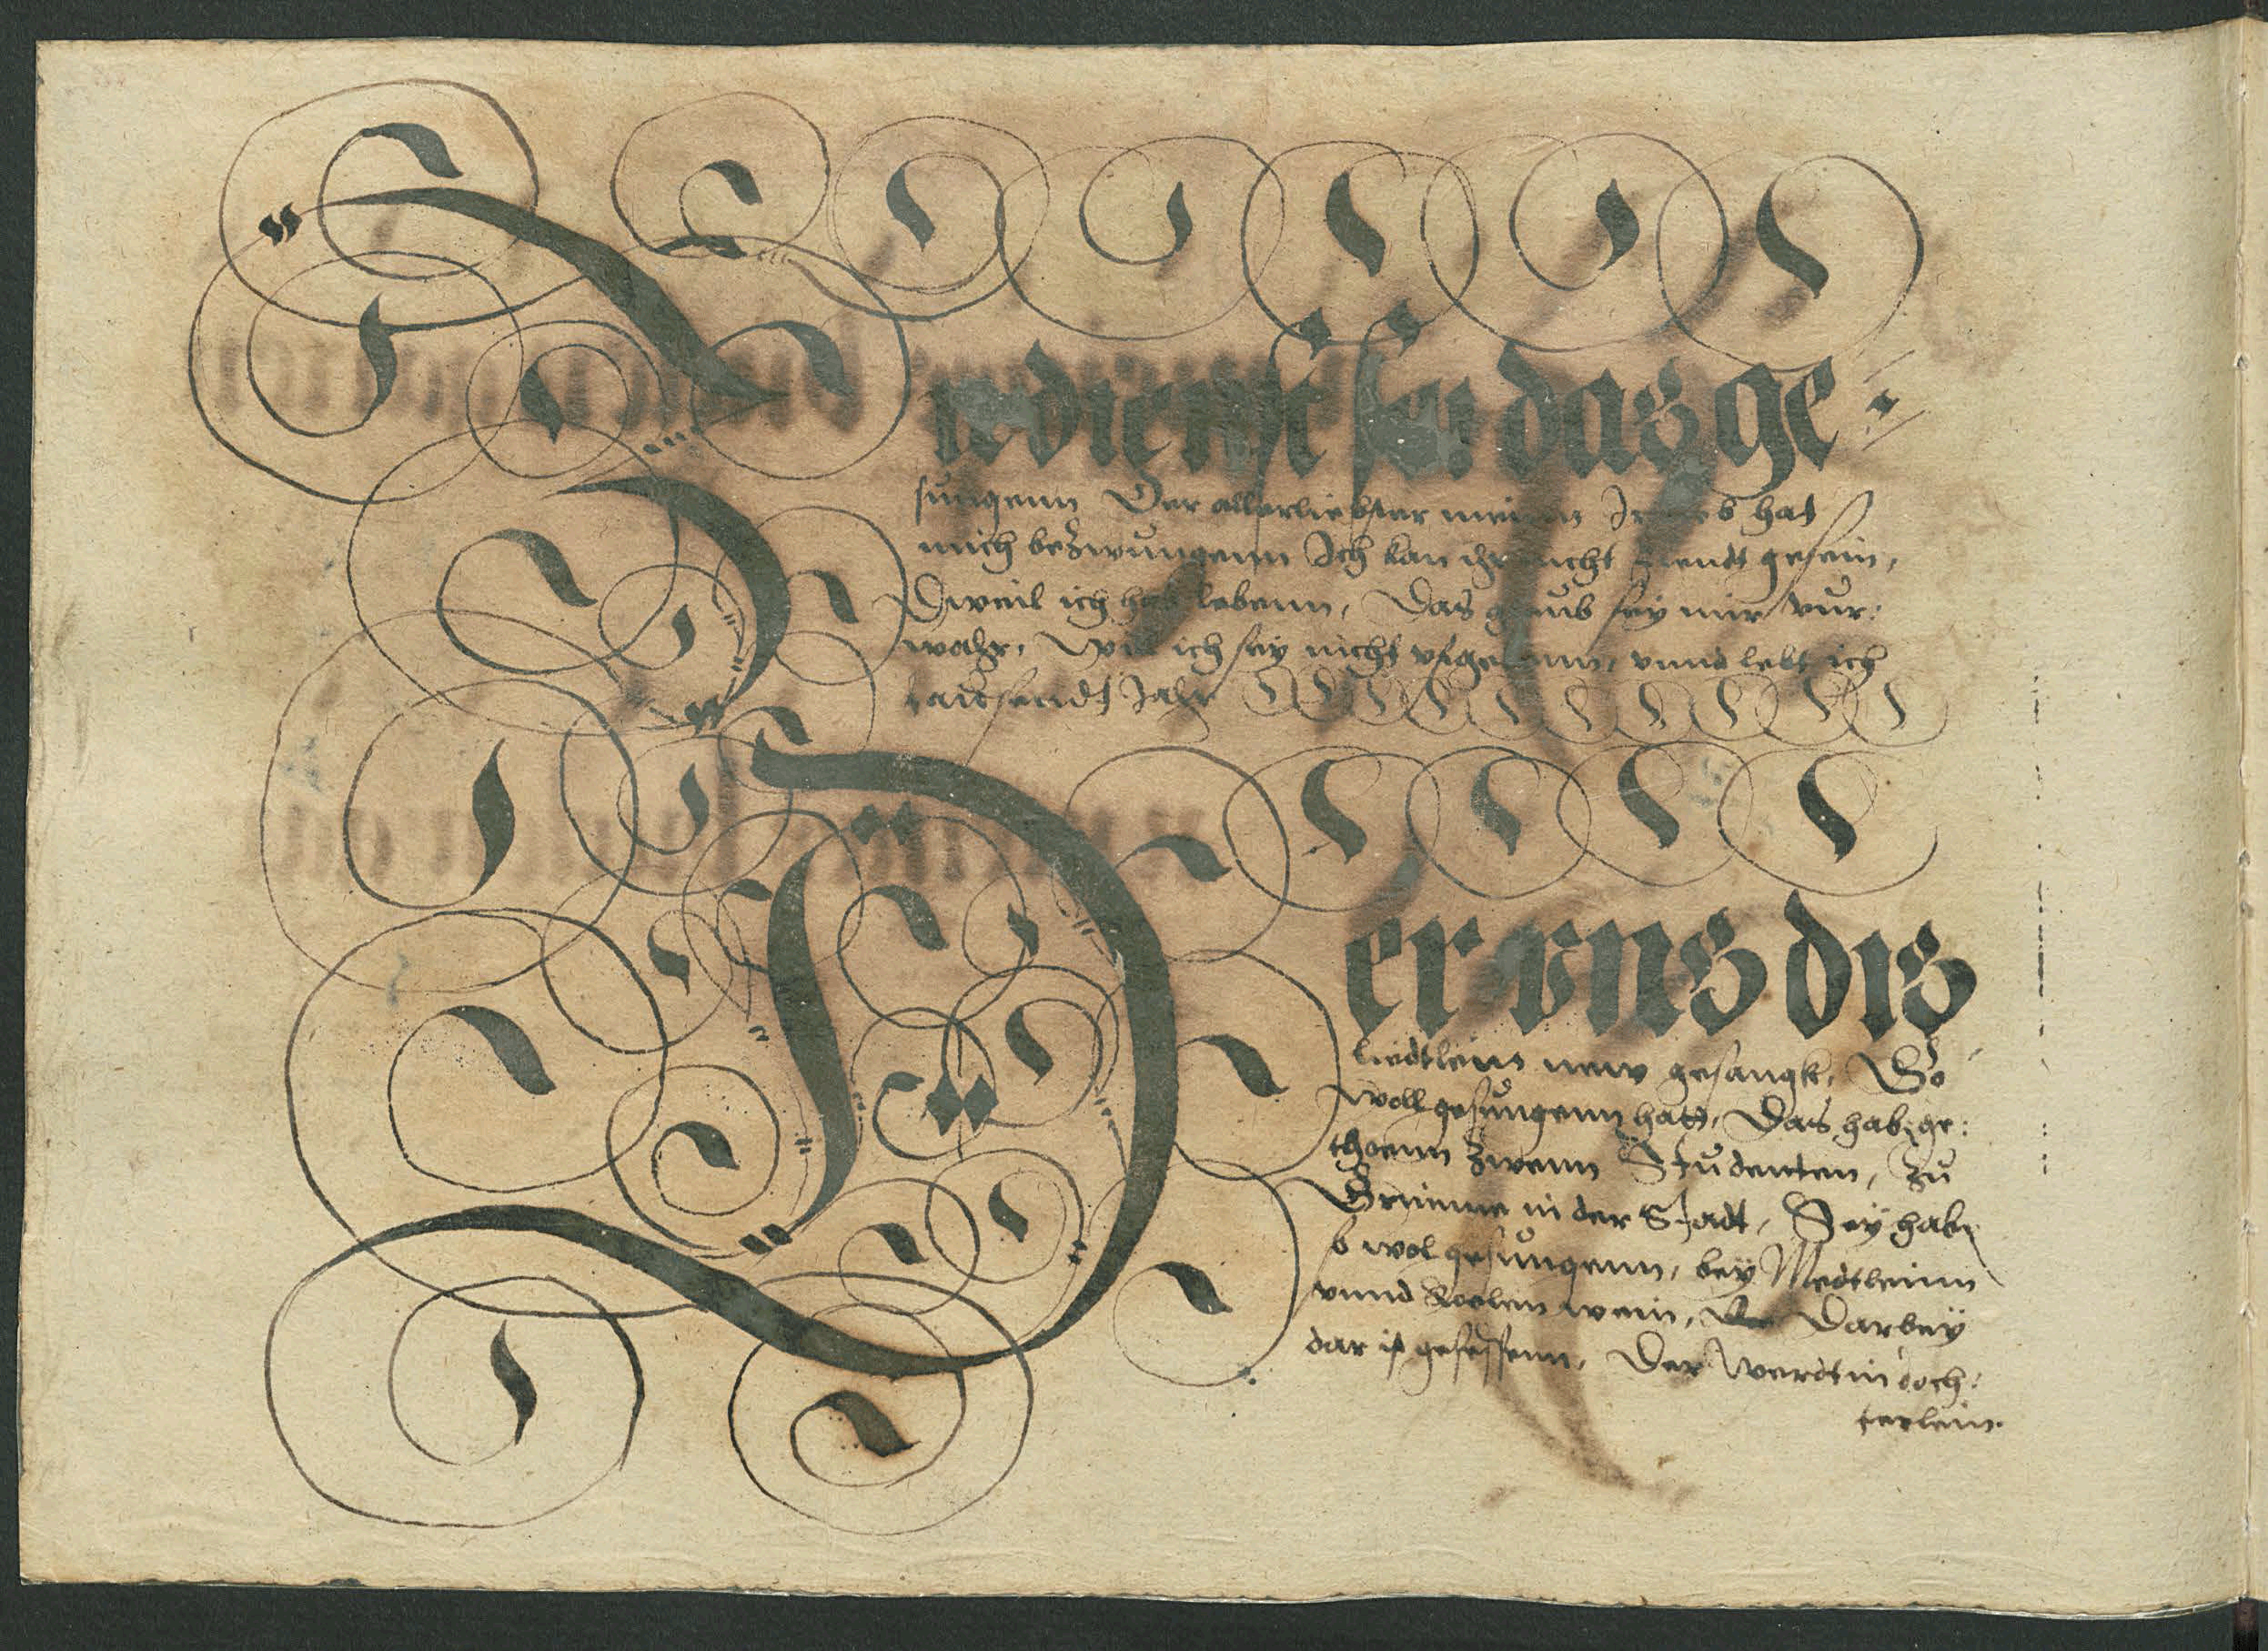 Zu dienst sei das ge-
sungenn Der allerliebster mein Ir lieb hat
mich bezwungenn Ich kan ihr nicht feindt gesein,
Dweil ich hab lebenn, Das glaub sey mir vur:
wahr, Wil ich sey nicht vfgebenn, vnnd lebt ich
tausendt Jahr
Der vns dis
liedtlein new gesangk, So
woll gesungenn hatt, Das habenn ge:
thoenn zwenn Studenten, zu
in der Stadt, Sey haben
s wol gesungenn, bey Medtleinn
vnnd Koelen wein, Darbey
dar ist gesessenn, Der Werdtin doch:
terlein.